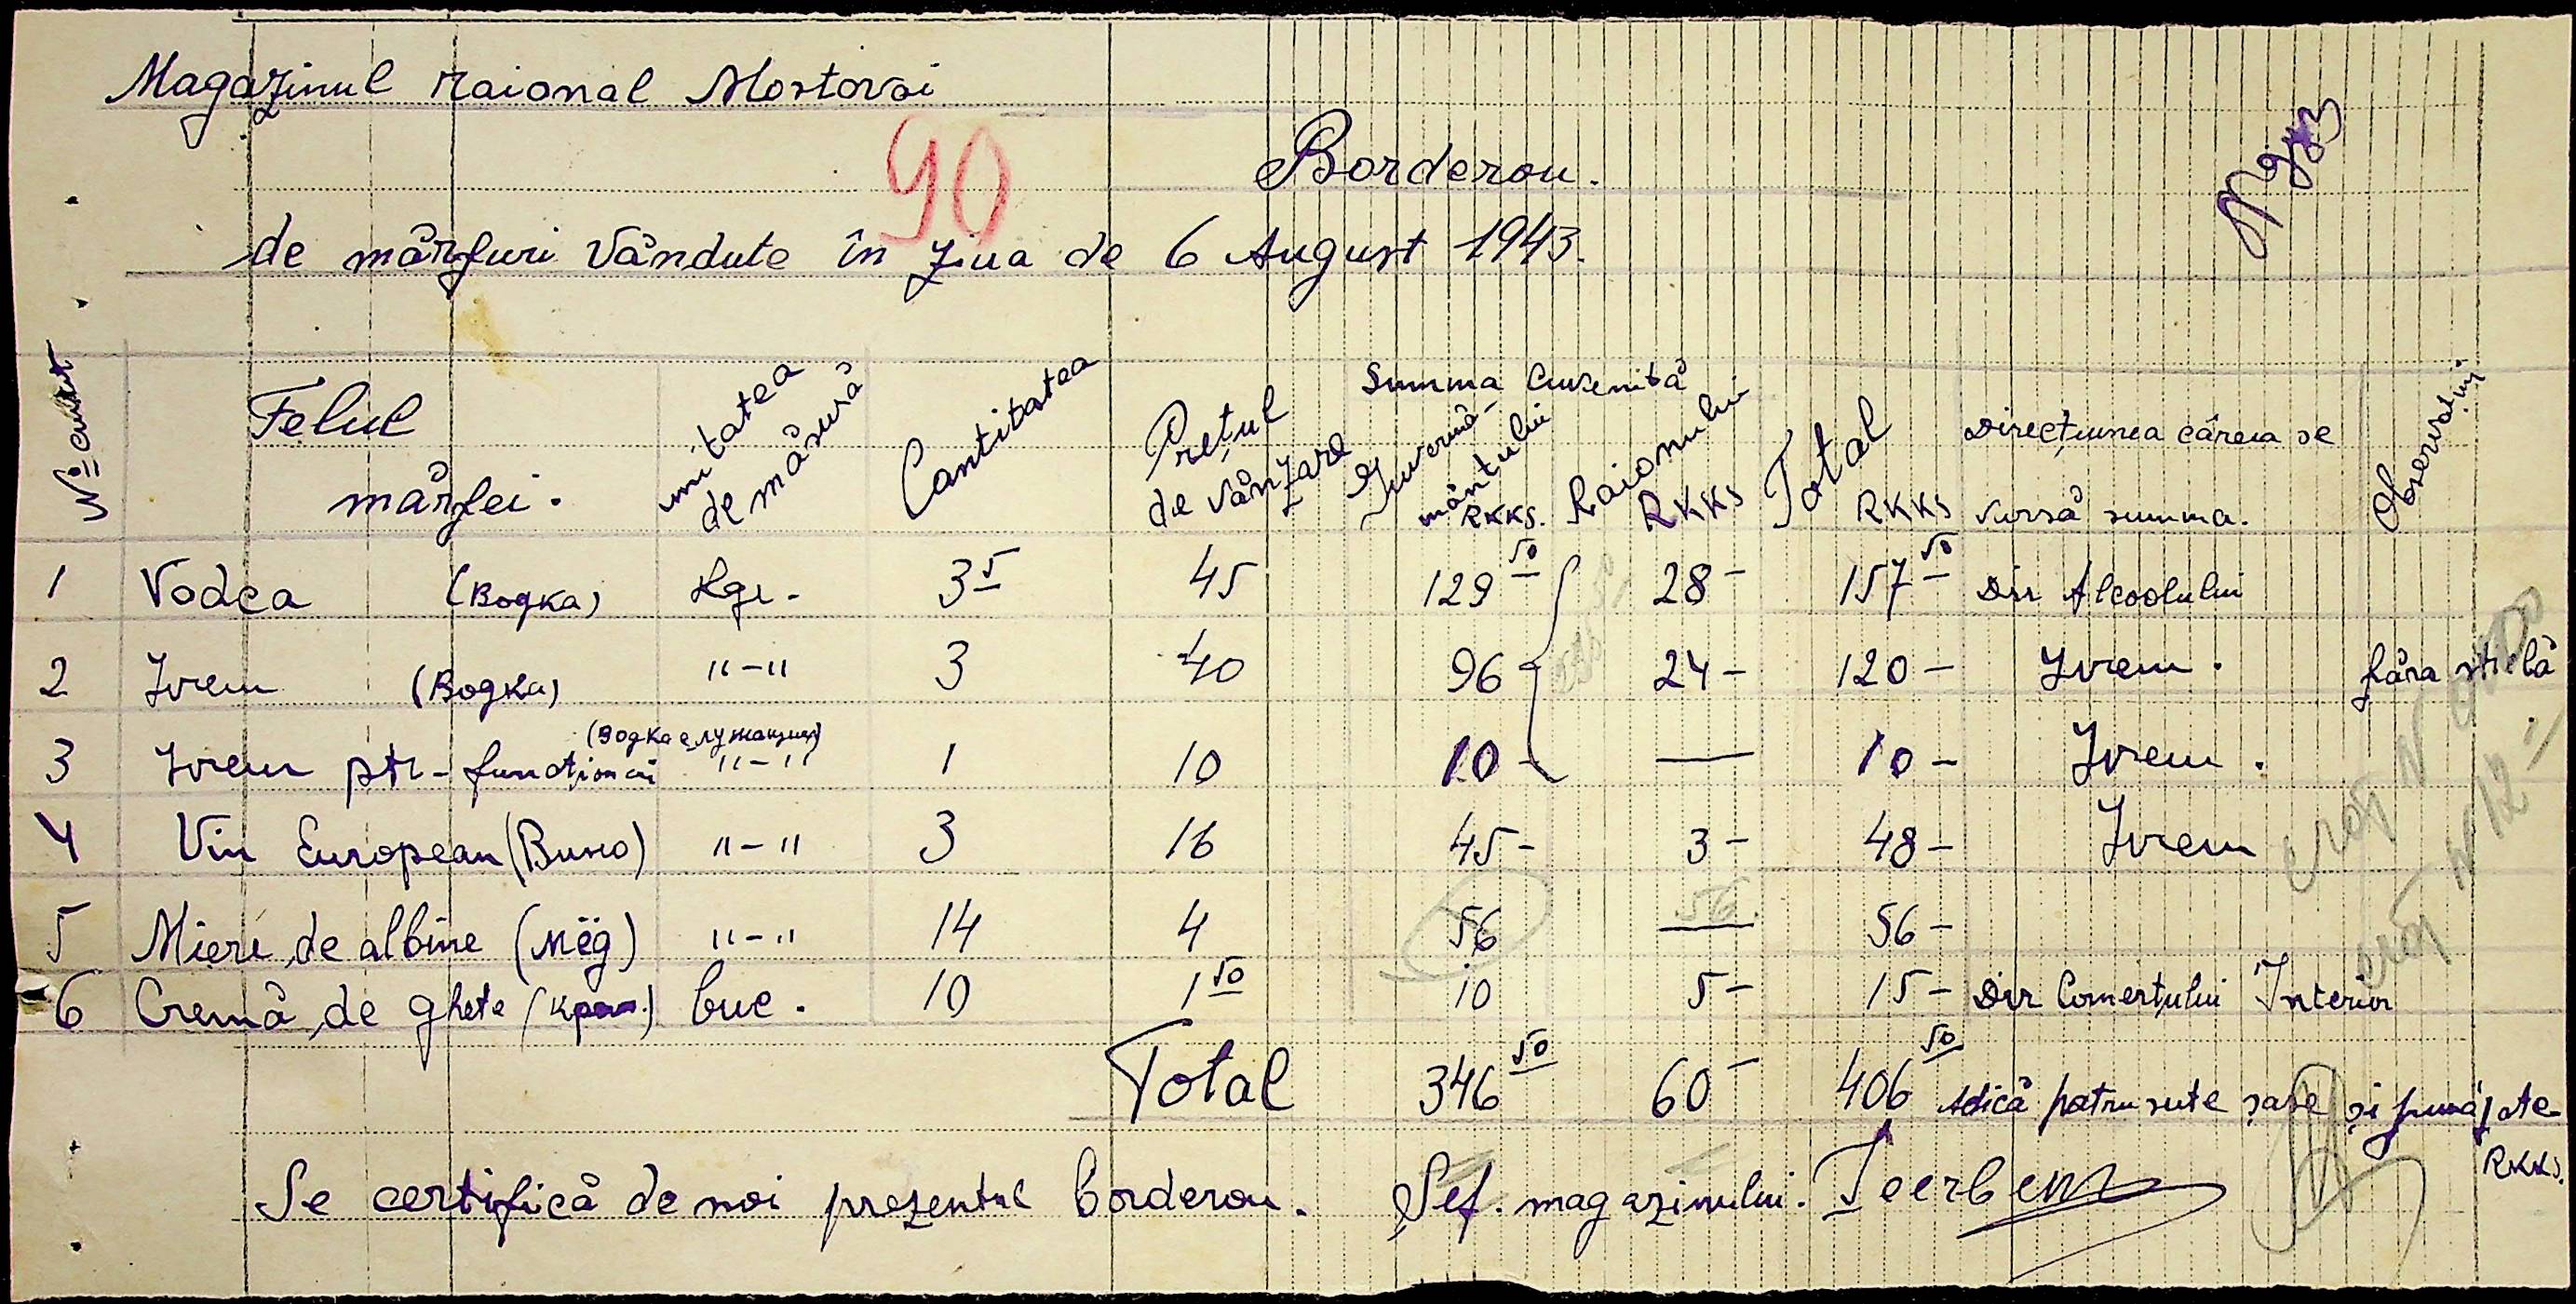 Magazinul raional Mostovoi
90
Borderou.
de mărfuri vândute în ziua de 6 August 1943.
Nº curent | Felul mărfei. | unitatea de măsură | Cantitatea | Prețul de vânzare | Summa cuvenită Guvernă-mântului RKKS. | Raionului RKKS | Total RKKS | Direcțiunea căreia se varsă summa. | Observațiuni
1 Vodca (Водка) Kgr. 3 5 45 129 50 28- 157 50 Dir Alcoolului
2 Ivrem (Водка) "-" 3 40 96- 24- 120- Ivrem. fără sticlă
3 Ivrem ptr- funcționari (Водка служащим) "-" 1 10 10- — 10- Ivrem.
4 Vin European (Вино) "-" 3 16 45- 3- 48- Ivrem
56.
5 Miere de albine (мёд) "-" 14 4 56 — 56-
6 Cremă de ghete (крем.) buc. 10 1 50 10 5- 15- Dir Comerțului Interior
Total 346 50 60- 406 50 Adică patru sute șase și jumătate RKKS.
Se certifică de noi prezentul borderou. Șef. magazinului.